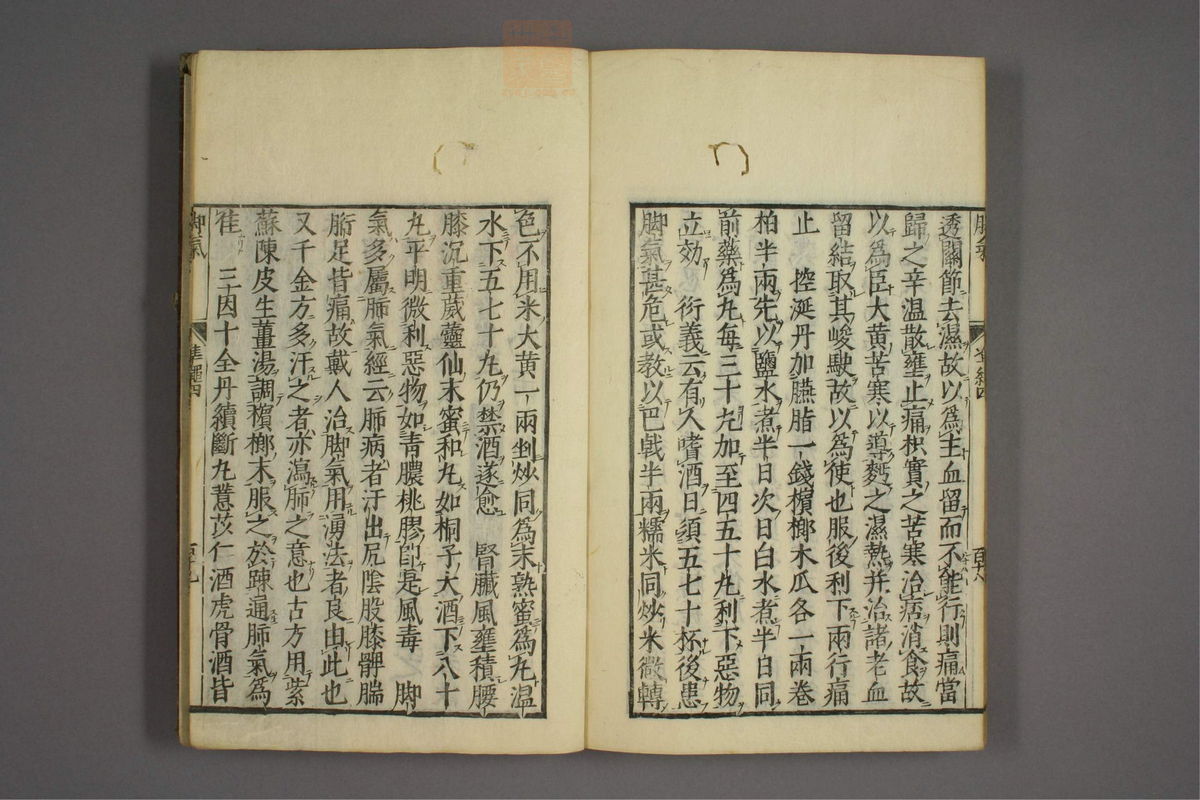 脚氣
準繩四
百六
透關節去濕故以爲主血留而不能行則痛當
歸之辛温散壅止痛枳實之苦寒治痞消食故
以爲臣大黄苦寒以導麪之濕熱并治諸老血
留結取其峻駃故以爲使也服後利下兩行痛
止　控涎丹加臙脂一錢檳榔木瓜各一兩卷
柏半兩先以鹽水煮半日次日白水煮半日同
前藥爲丸每三十丸加至四五十丸利下惡物
立効　衍義云有人嗜酒日須五七十杯後患
脚氣甚危或教以巴戟半兩糯米同炒米微轉
色不用米大黄一兩剉炒同爲末熟蜜爲丸温
水下五七十丸仍禁酒遂愈　腎臟風壅積腰
膝沉重葳靈仙末蜜和丸如桐子大酒下八十
丸平明微利惡物如青膿桃膠卽是風毒　脚
氣多屬肺氣經云肺病者汗出尻陰股膝髀腨
胻足皆痛故戴人治脚氣用湧法者良由此也
又千金方多汗之者亦瀉肺之意也古方用紫
蘇陳皮生薑湯調檳榔末服之於踈通肺氣爲
佳　三因十全丹續斷丸薏苡仁酒虎骨酒皆
脚氣
準繩四